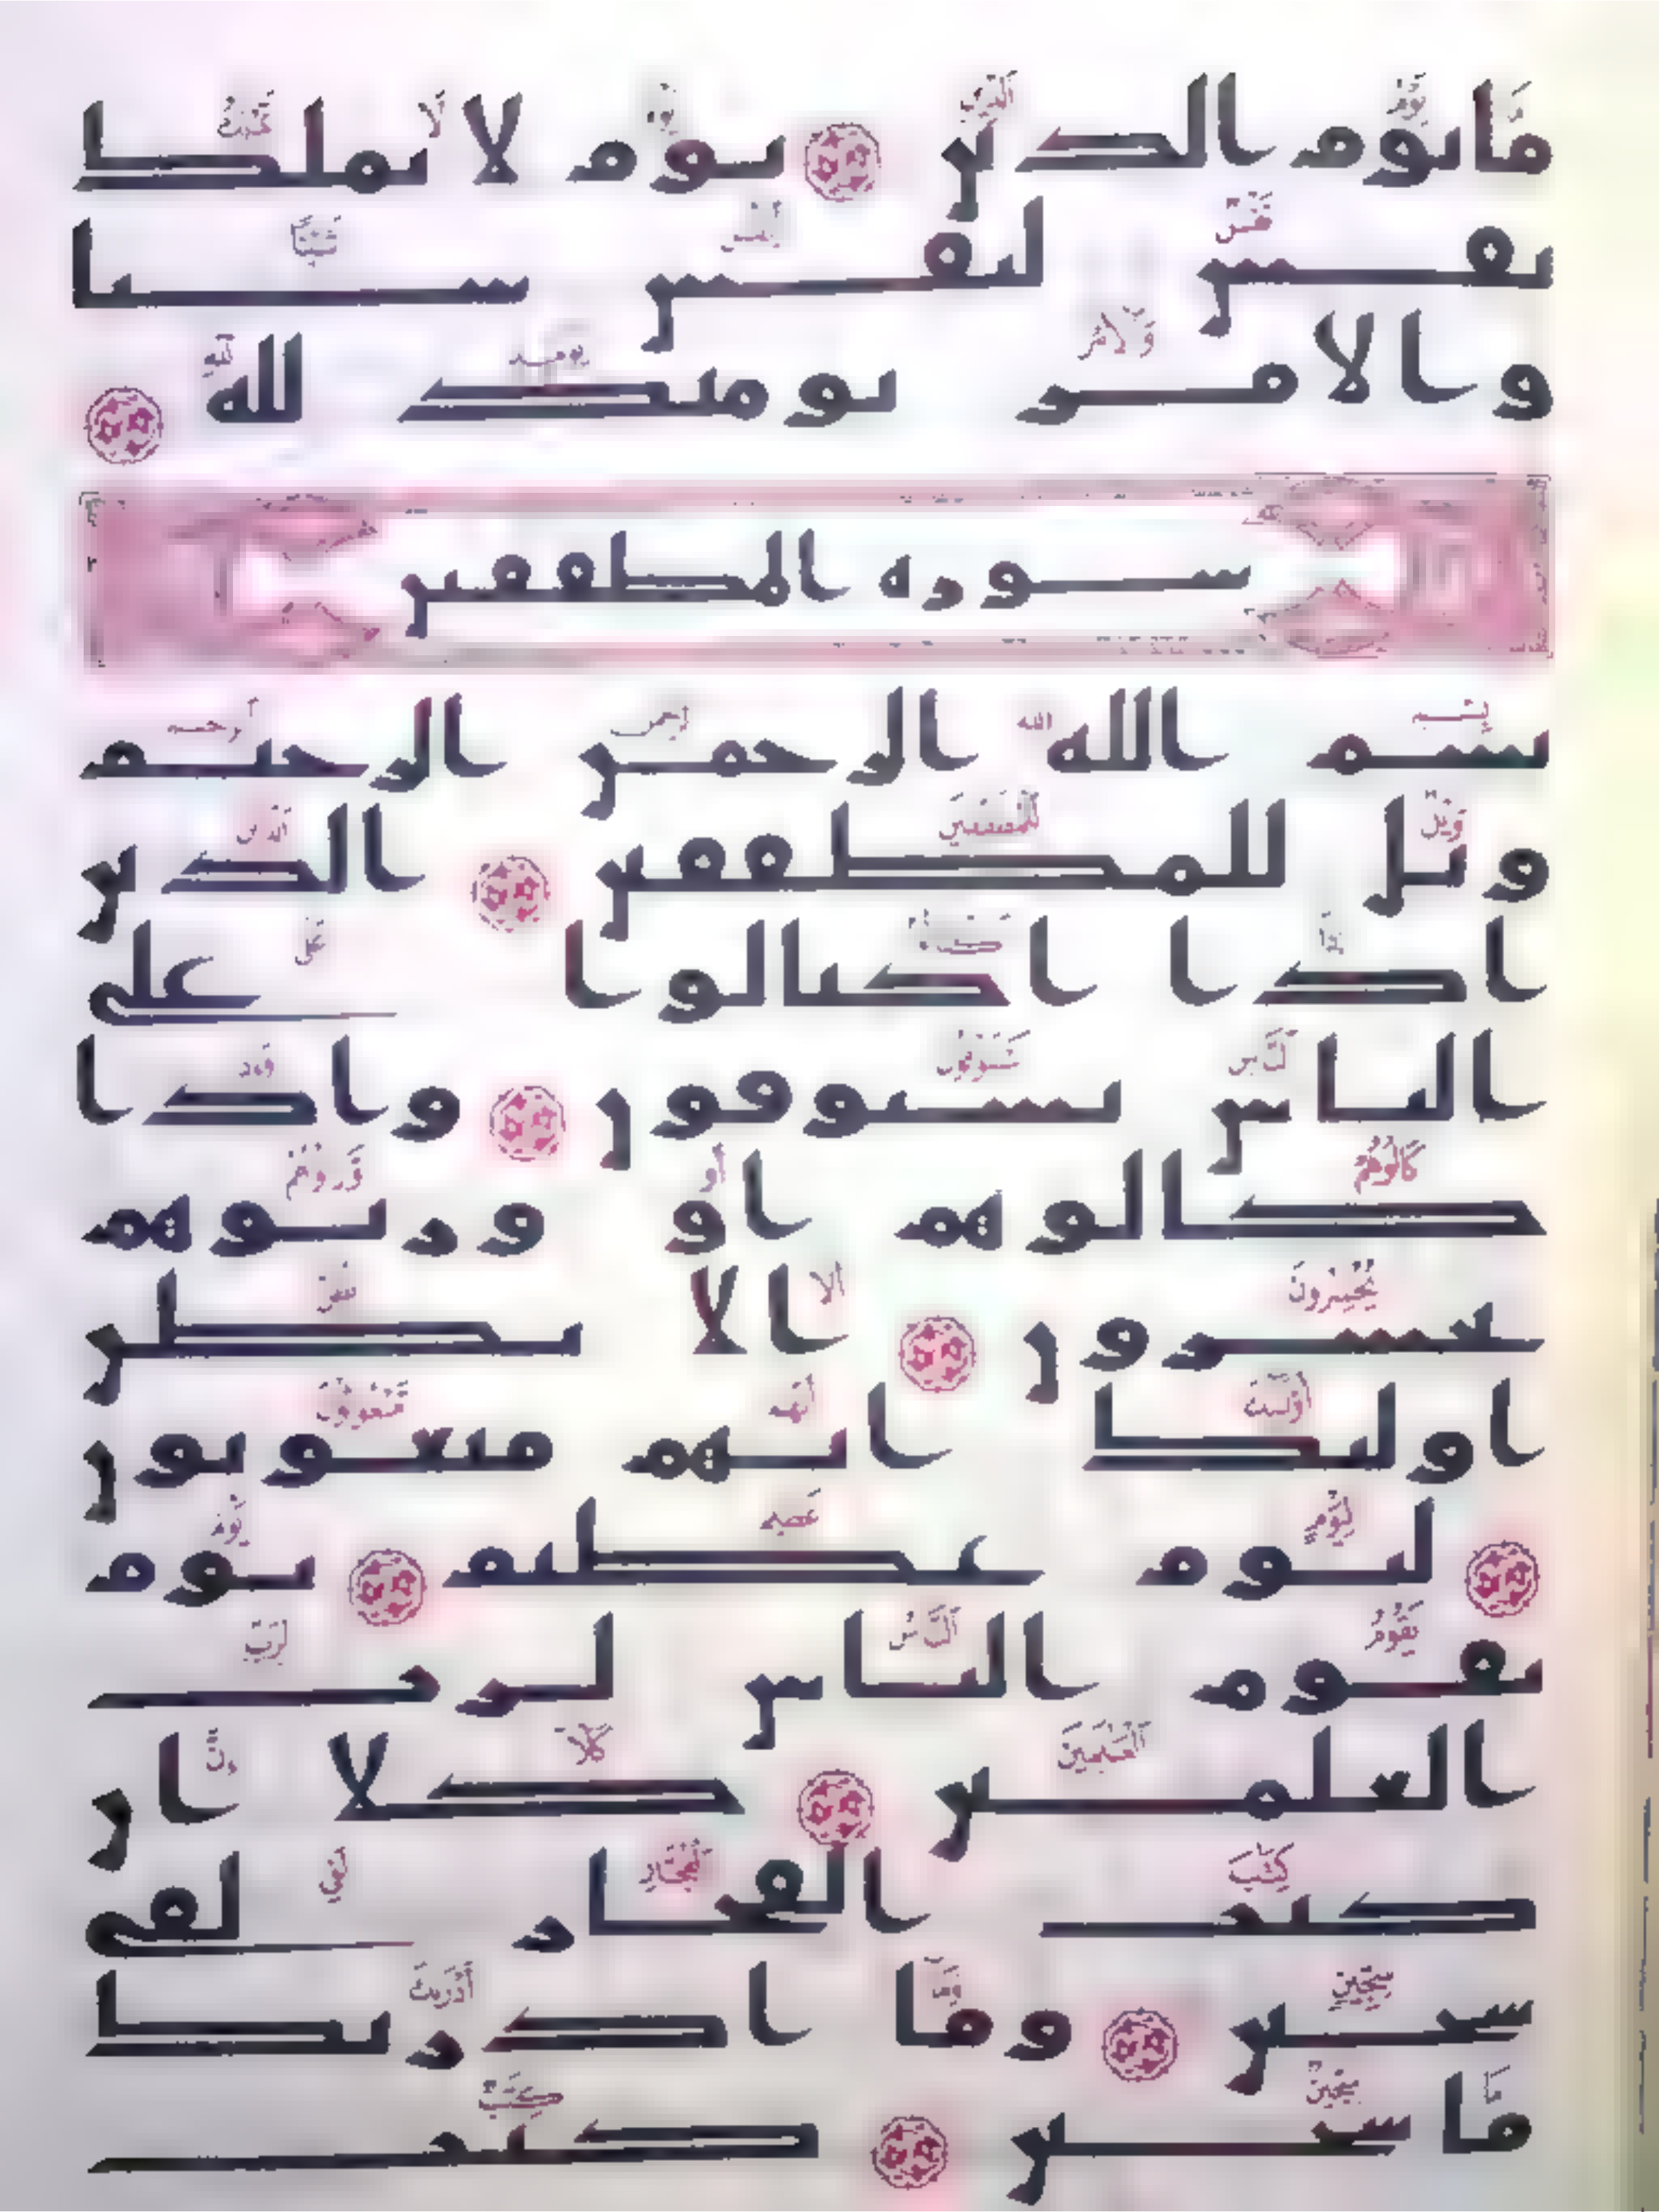 ما يوم الدين يوم لا تملك
نفس لنفس شيا
والامر يومئذ لله
سورة المطففين
بسم الله الرحمن الرحيم
ويل للمطففين الذين
اذا اكتالوا على
الناس يستوفون واذا
كالوهم او وزنوهم
يخسرون الا يظن
اولئك انهم مبعوثون
ليوم عظيم يوم
يقوم الناس لرب
العلمين كلا ان
كتب الفجار لفي
سجين وما ادريك
ما سجين كتب